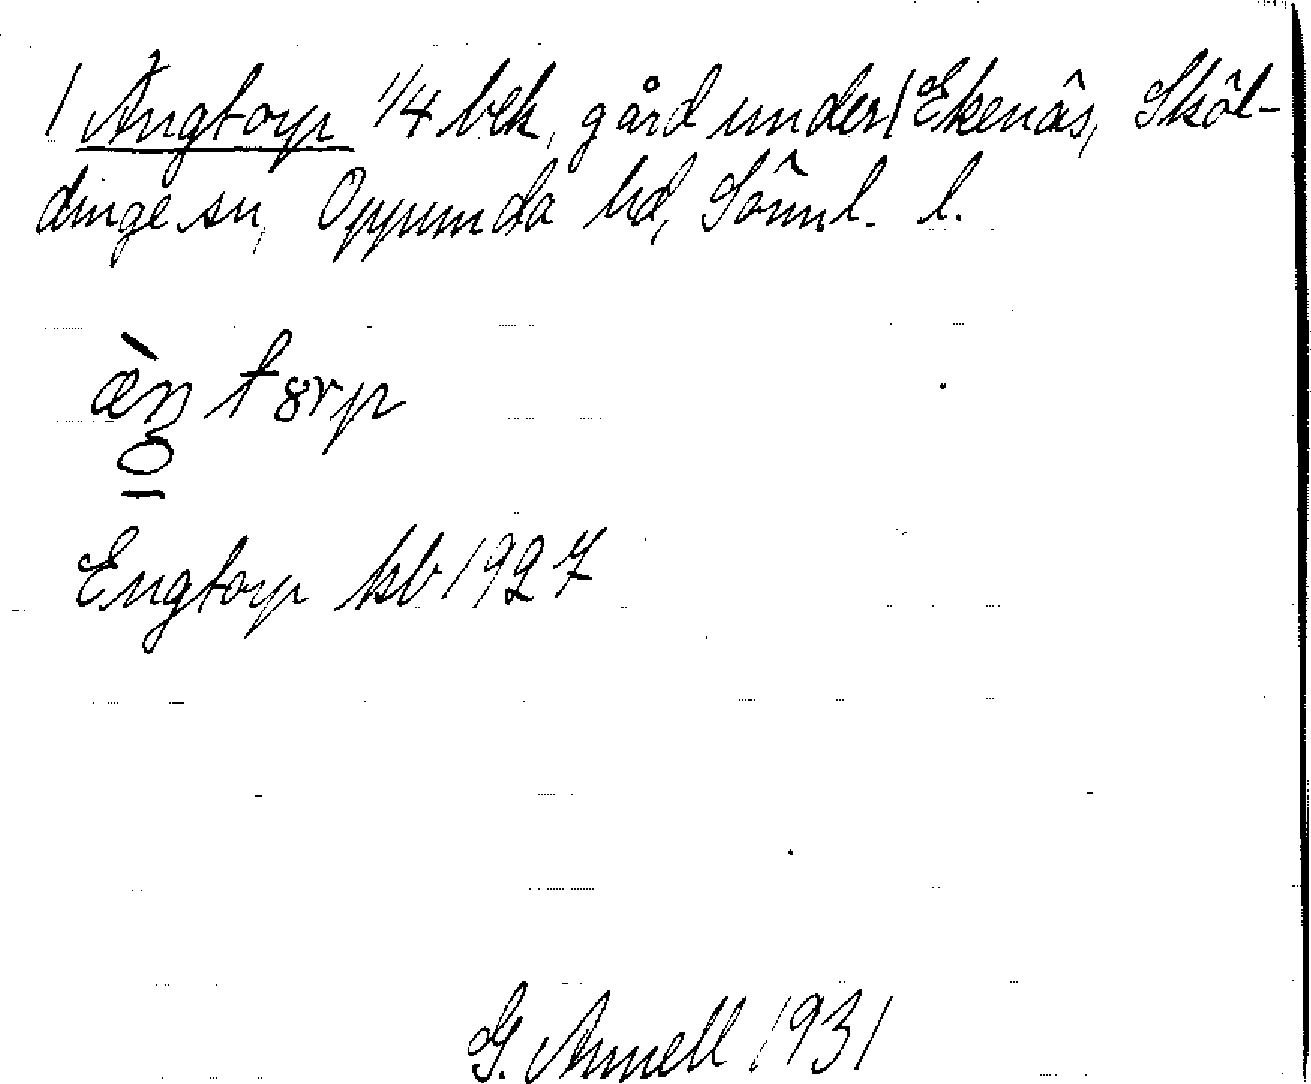 1 Ängtorp 1/4 bek. gård under / Ekenäs, Sköl-
dinge sn, Oppunda hd, Sörml. l.
Engtorp kb 1927
G. Annell 1931